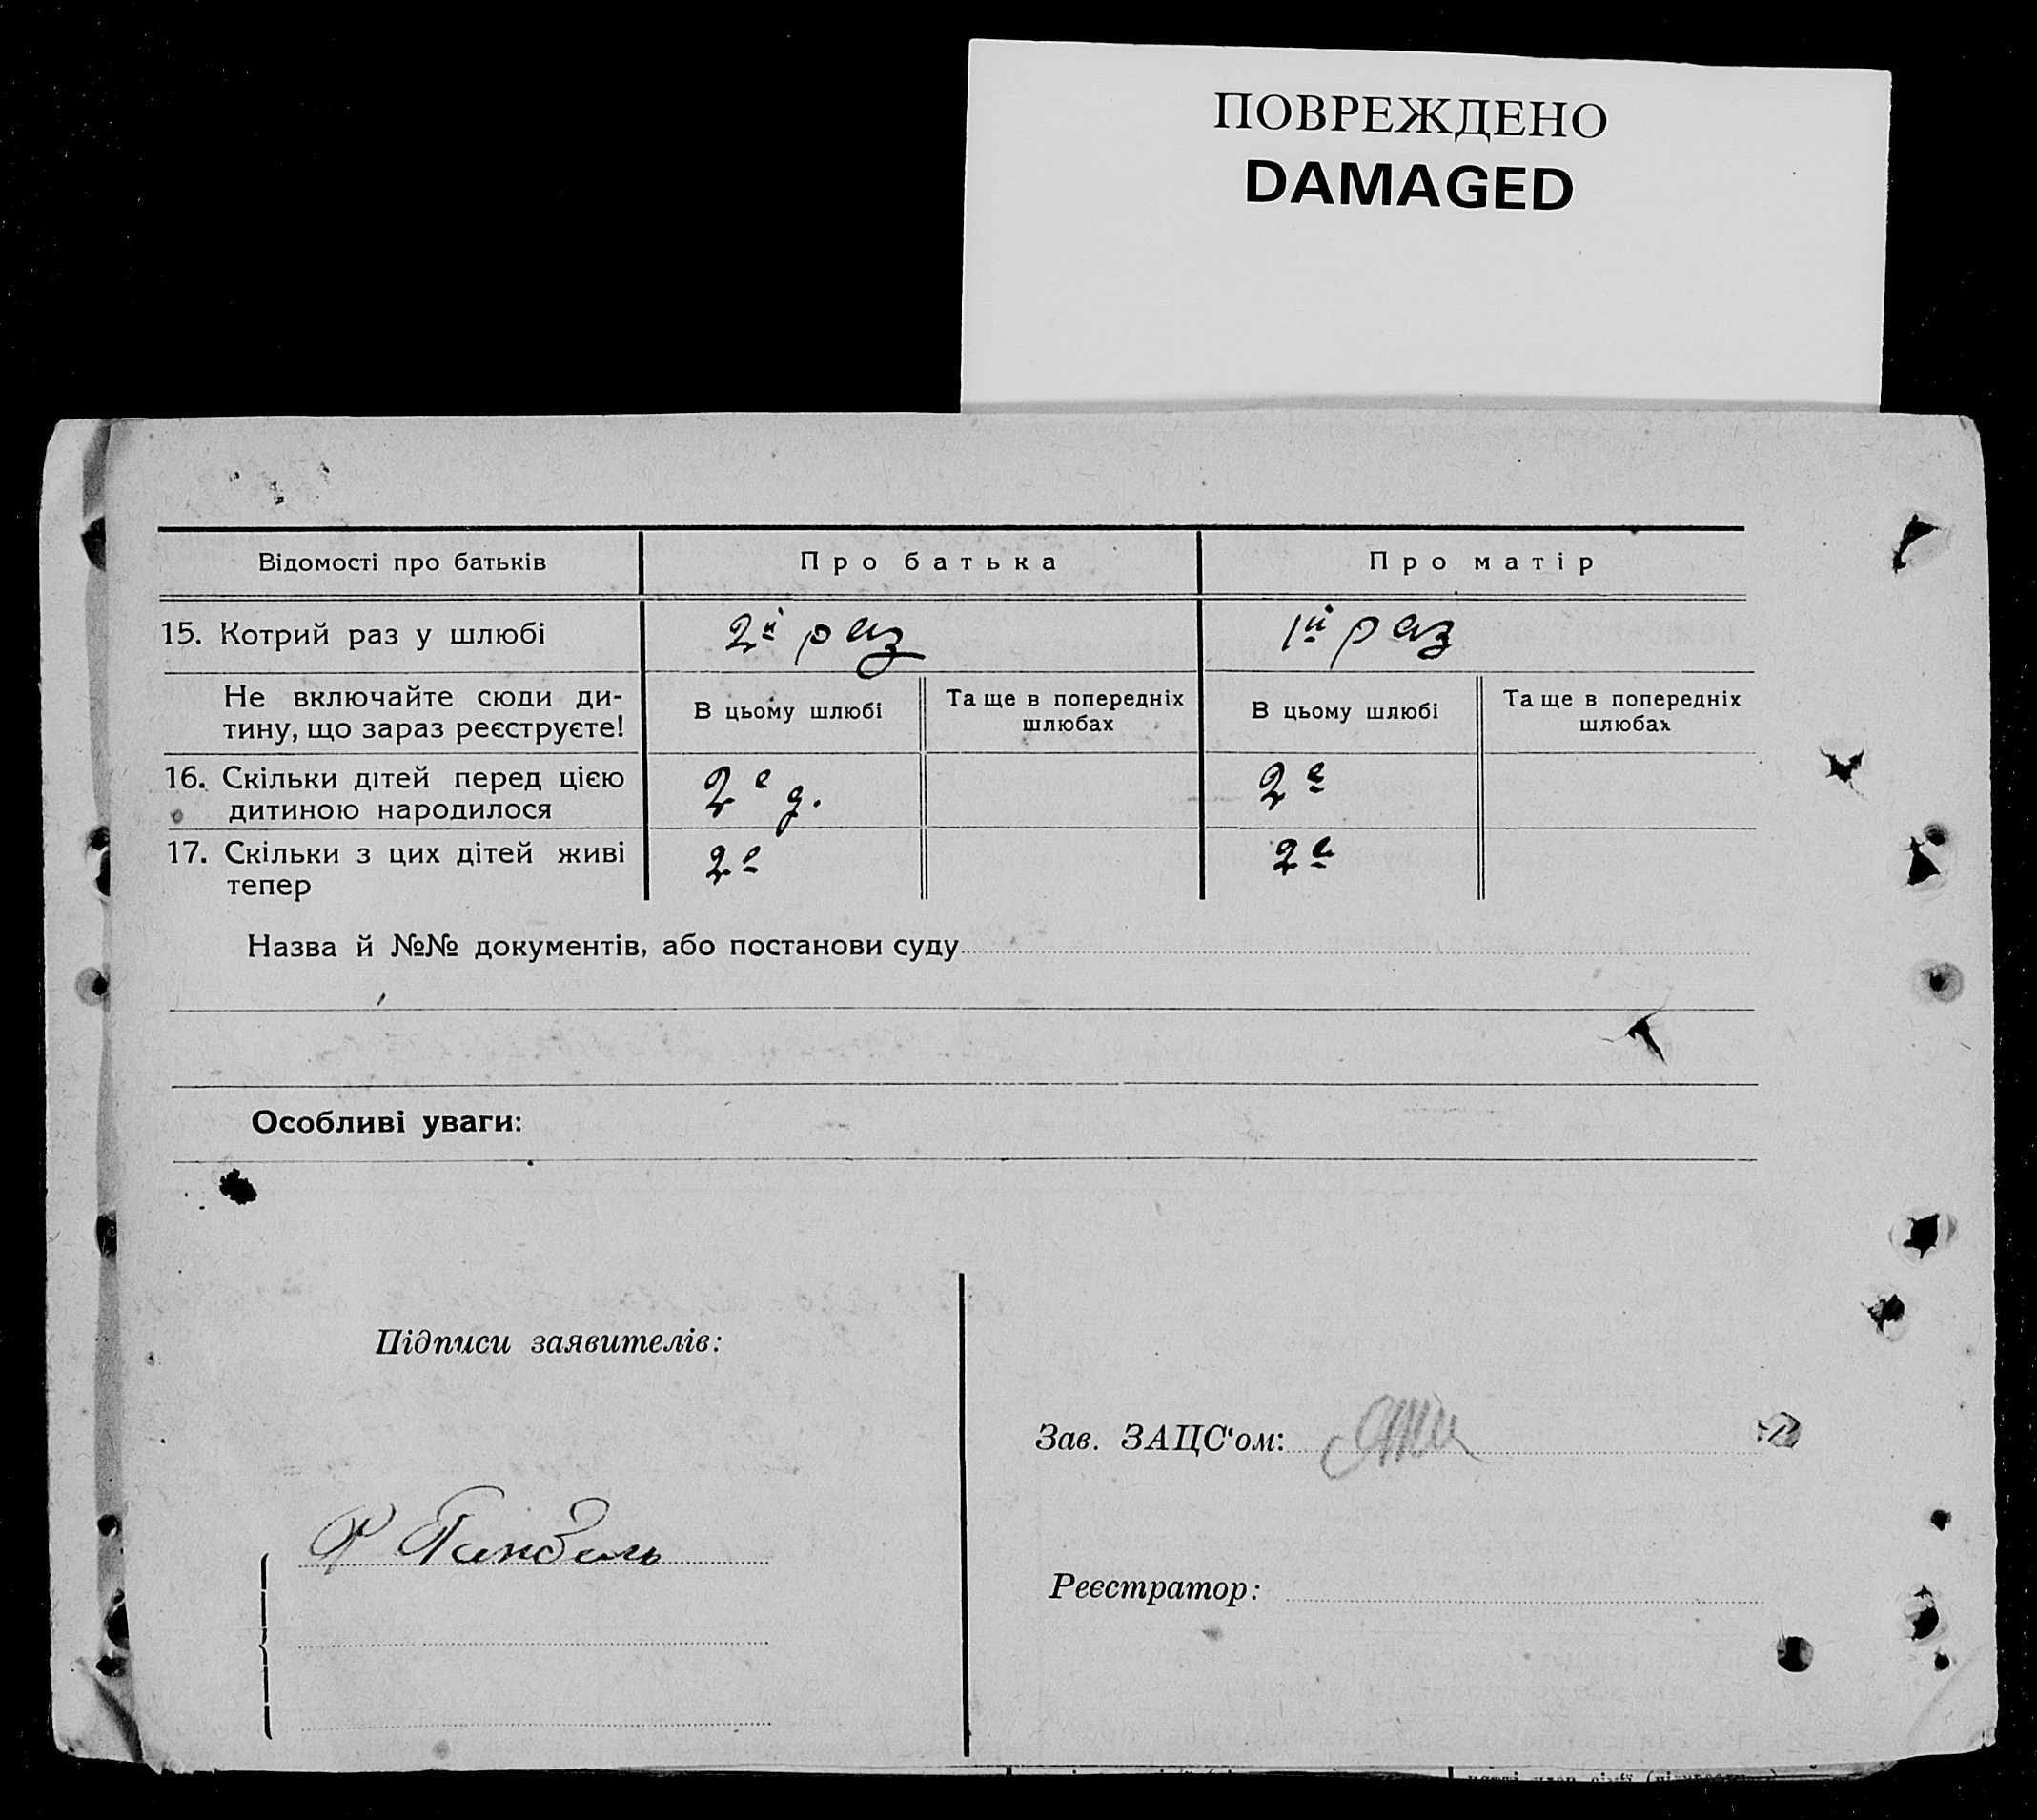 ПОВРЕЖДЕНО
DAMAGED
Відомості про батьків Про батька Про матір
15. Котрий раз у шлюбі 2й раз 1й раз
Не включайте сюди ди-
тину, що зараз реєструєте!
В цьому шлюбі
Та ще в попередніх
шлюбах
В цьому шлюбі
Та ще в попередніх
шлюбах
16. Скільки дітей перед цією
дитиною народилося
2е д. 2е
17. Скільки з цих дітей живі
тепер
2е 2е
Назва й №№ документів, або постанови суду
Особливі уваги:
Підписи заявителів:
Зав. ЗАЦС‘ом:
Реєстратор: